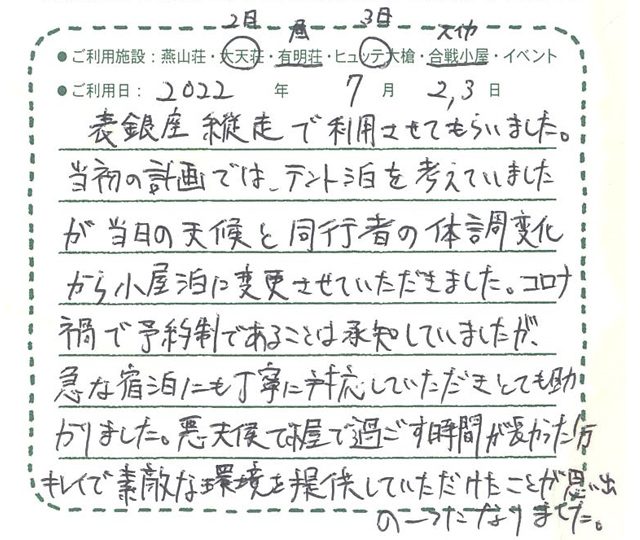 2日 風 3日 スイカ
●ご利用施設：燕山荘・大天荘・有明荘・ヒュッテ大槍・合戦小屋・イベント
●ご利用日：2022 年 7 月 2,3 日
表銀座縦走で利用させてもらいました。
当初の計画では、テント泊を考えていました
が当日の天候と同行者の体調変化
から小屋泊に変更させていただきました。コロナ
禍で予約制であることは承知していましたが、
急な宿泊にも丁寧に対応していただきとても助
かりました。悪天候で小屋で過ごす時間が長かった分
キレイで素敵な環境を提供していただけたことが思い出
の一つになりました。